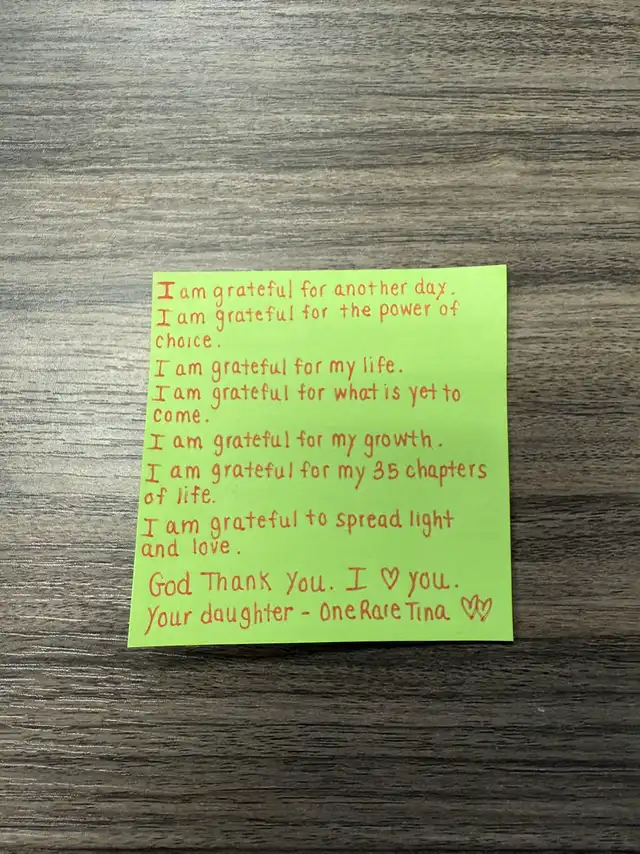 I am grateful for another day.
I am grateful for the power of
choice.
I am grateful for my life.
I am grateful for what is yet to
come.
I am grateful for my growth.
I am grateful for my 35 chapters
of life.
I am grateful to spread light
and love.
God Thank You. I ♡ you.
Your daughter - OneRareTina ♡♡